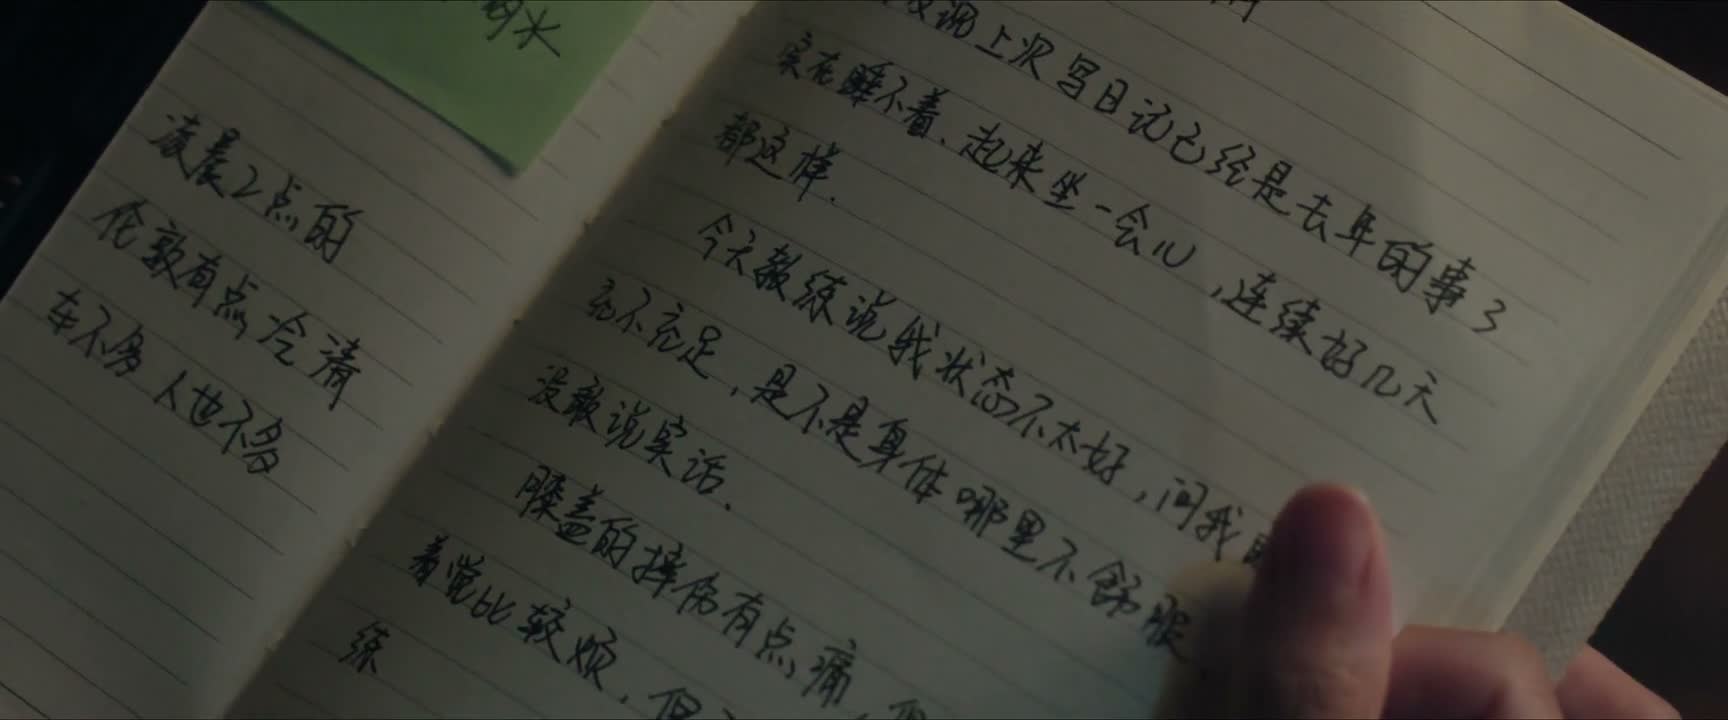 湖水
凌晨2点的
伦敦有点冷清
车不多 人也不多
发现上次写日记已经是去年的事了
实在睡不着、起来坐一会儿,连续好几天
都这样.
今天教练说我状态不太好,问我
充不充足,是不是身体哪里不舒服
没敢说实话.
膝盖的摔伤有点痛,但
着觉比较烦,但
练